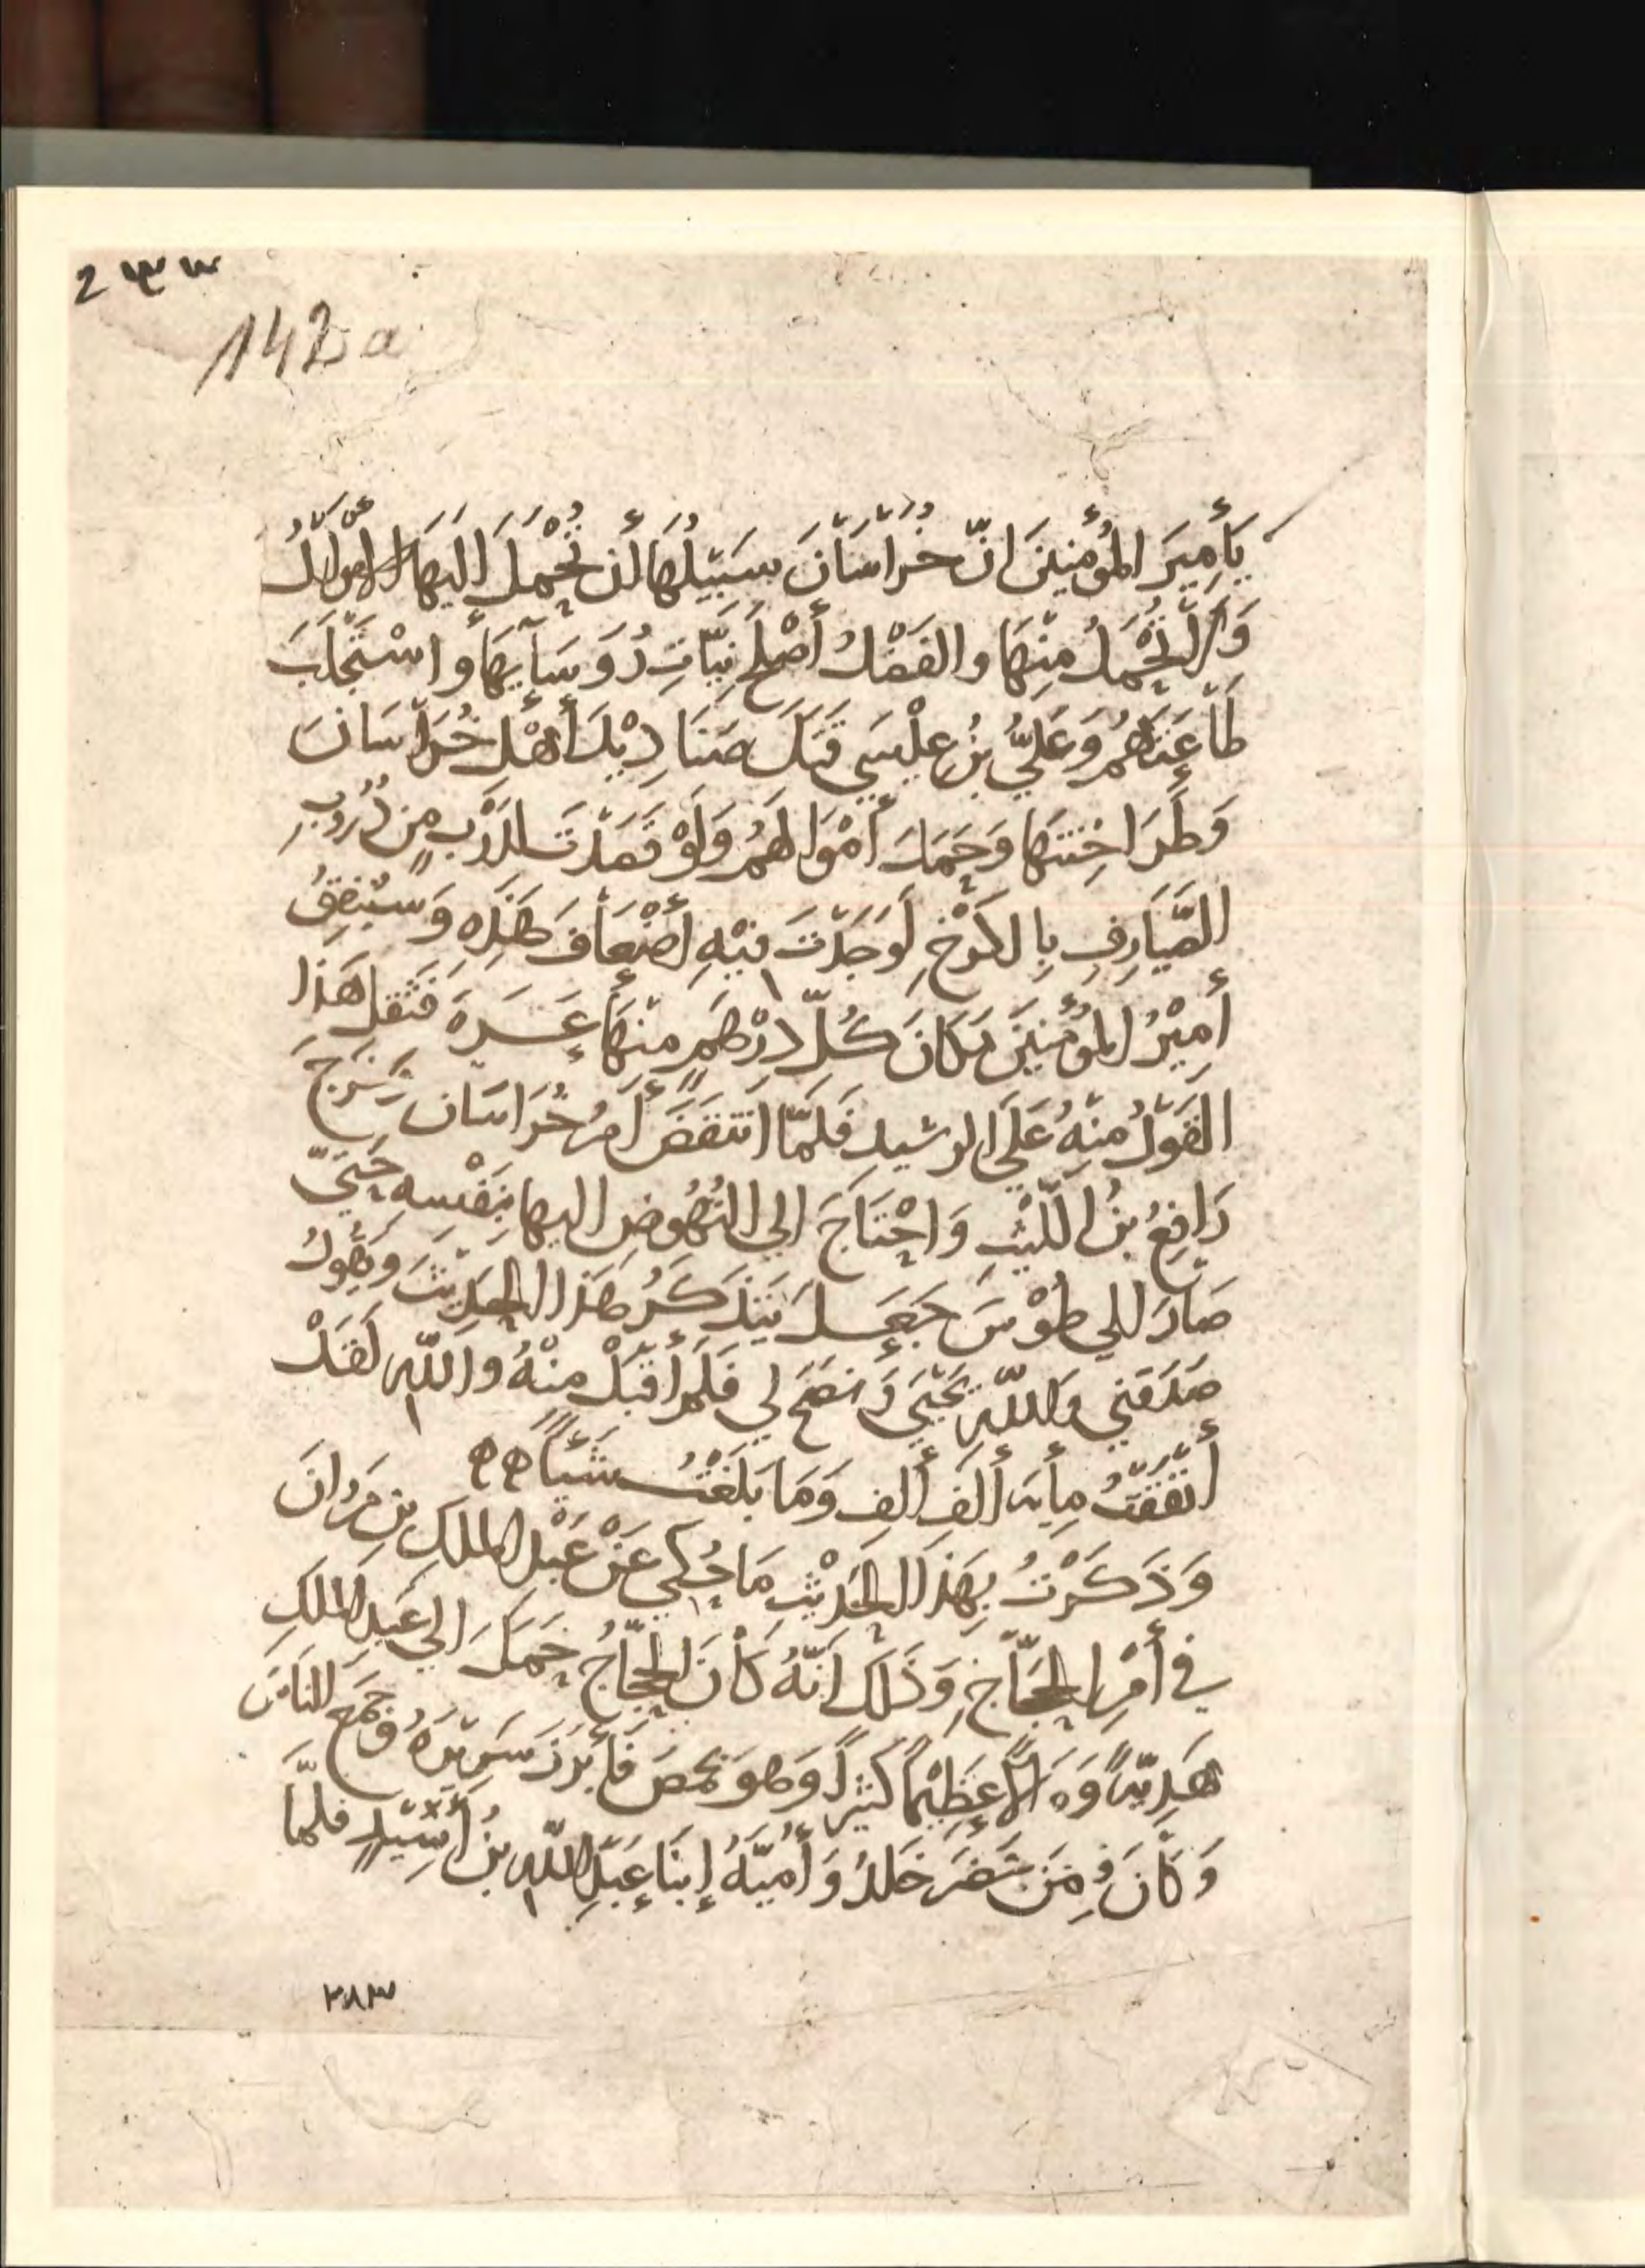 ٢٣٣
142a
يَأَمِيرَ المُؤْمِنِينَ انّ خُرَاسَانَ سَبِيْلُهَا أن تُحْمَلَ اليَهَا الأموَالُ
وَلَا تُحْمَلُ مِنْهَا والفَضْلُ أَصْلَحَ نِيَّاتِ رُوَسَآيِهَا واسْتَجْلَبَ
طَاعَتَهُمْ وَعَلِيُّ بنُ عِيْسَي قَتَلَ صَنَادِيْدَ أَهْلِ خُرَاسَانَ
وَطَرَاخِنَتَهَا وَحَمَلَ أمْوَالَهُمْ وَلَوْ قَصَدْتَ لدَرْبٍ مِن دُرُوبِ
الصَّيَارِفِ بِالكَرْخِ لَوَجَدْتَ فِيْهِ أضْعَافَ هَذِهِ وَسَيُنْفِقُ
أَمِيْرُ المُؤمِنِيْنَ مَكَانَ كُلّ دِرْهَمٍ مِنْهَا عَشَرَةً فَثَقُلَ هَذَا
القَوْلُ مِنْهُ عَلَي الرشيد فَلَمَّا انتَقَضَ أَمرُ خُرَاسَان وَخَرَجَ
رَافِعُ بنُ اللَّيْثِ وَاحْتَاجَ الي النُهُوضِ اليها بِنَفْسِهِ حَتيّ
صَارَ الي طُوْسَ جَعَلَ يَتَذَكَرُ هَذَا الحَدِيْثَ وَيَقُولُ
صَدَقَنِي وَاللّه يَحْيَي وَنصَحَ لي فَلَم أقْبَلْ مِنْهُ واللّه لَقَدْ
أَنْفَقْتُ مِأيَه أَلفِ أَلفٍ وَمَا بَلَغْتُ شَيْأً
وَذَكَرْتُ بِهَذَا الحَدِيْثِ مَا حُكِي عَنْ عَبْدِ المَلكِ بن مَروَانَ
في أَمْرِ الحَجَّاجِ وَذَلكَ أنَّهُ كَانَ الحَجَّاجُ حَمَلَ الي عَبدِ المَلكِ
هَدِيَّةً وَمَالًا عَظِيْمًا كَثِيرًا وَهوَ بحِمصَ فَأَبْرَزَ سَرِيْرَهُ وَجَمَعَ النَاسَ
وَكَانَ فِي مَن حَضَرَ خَلدُ وَأُمَيَّةُ إبنَا عَبْدِ اللّه بنُ أَسِيْدٍ فلمَّا
٢٨٣